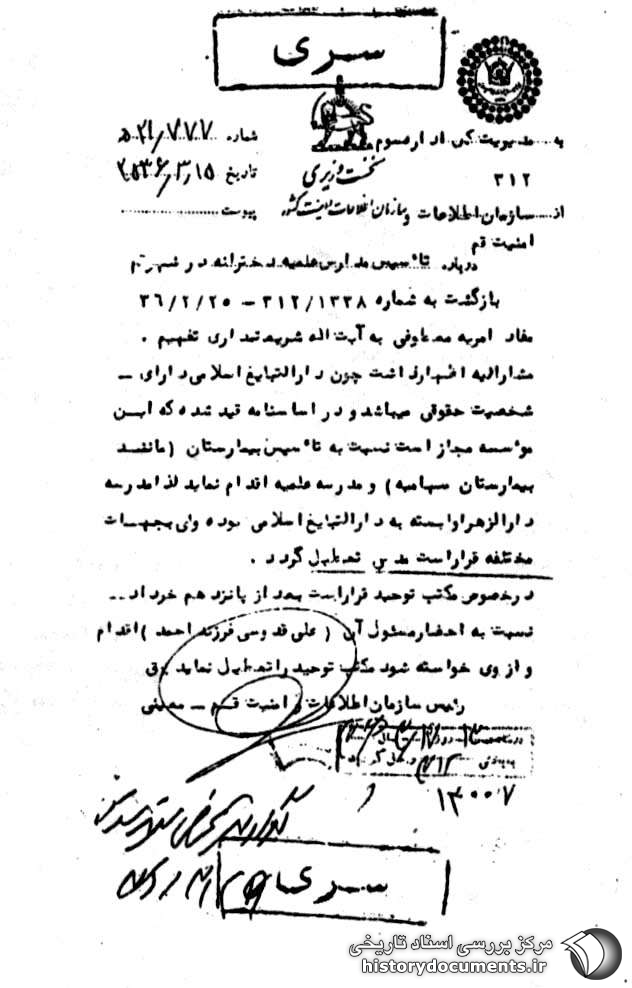 سری
شماره ۲۱/۷۷۷ ه
به مدیریت کل اداره سوم
نخست وزیری
تاریخ ۲۵۳۶/۳/۱۵
۳۱۲
از سازمان اطلاعات و سازمان اطلاعات و امنیت کشور
پیوست
امنیت قم
درباره تائسیس مدارس علمیه دخترانه در شهر قم
بازگشت به شماره ۳۱۲/۱۳۳۸ – ۳۶/۲/۲۵
مفاد امریه معطوفی به آیت اله شریعتمداری تفهیم .
مشارالیه اظهار داشت چون دارالتبلیغ اسلامی دارای –
شخصیت حقوقی میباشد و در اساسنامه قید شده که ایسن
موسسه مجاز است نسبت به تائسیس بیمارستان (ماننسد
بیمارستان سهامیه) و مدرسه علمیه اقدام نماید لذا مدرسه
دارالزهرا وابسته به دارالتبلیغ اسلامی بوده ولی بجهسات
مختلفه قرار است تعطیل گردد .
در خصوص مکتب توحید قرار است بعد از پانزدهم خرداد..
نسبت به احضار مسئول آن (علی قدوسی فرزند احمد) اقدام
و از وی خواسته شود مکتب توحید را تعطیل نماید
رئیس سازمان اطلاعات و امنیت قسم – معینی
۱۳۰۰۷
سری
مرکز بررسی اسناد تاریخی
historydocuments.ir